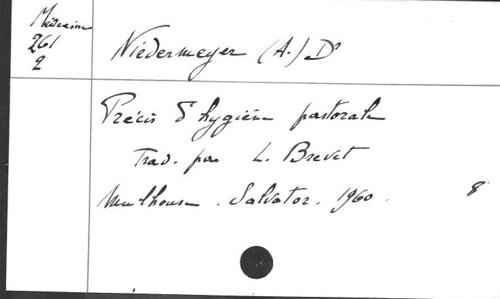 Médecine
261
2
Niedermeyer (A.) Dr
Précis d'hygiène pastorale
Trad. par L. Brevet
Mulhouse. Salvator. 1960. 8